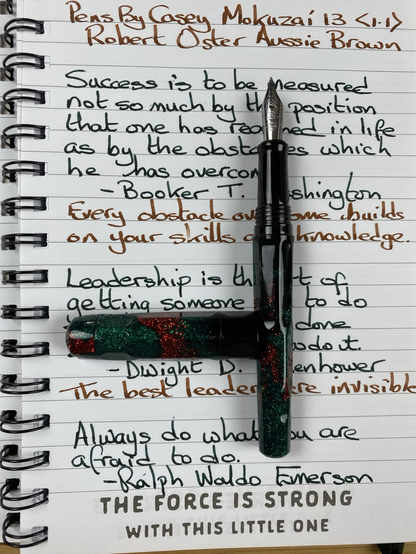 Pens By Casey Mokuzai 13 <1.1>
Robert Oster Aussie Brown
Success is to be measured
not so much by the position
that one has reached in life
as by the obstacles which
he has overcome
- Booker T. Washington
Every obstacle overcome builds
on your skills and knowledge.
Leadership is the art of
getting someone to do
done
do it.
- Dwight D. Eisenhower
The best leaders are invisible
Always do what you are
afraid to do.
- Ralph Waldo Emerson
THE FORCE IS STRONG
WITH THIS LITTLE ONE